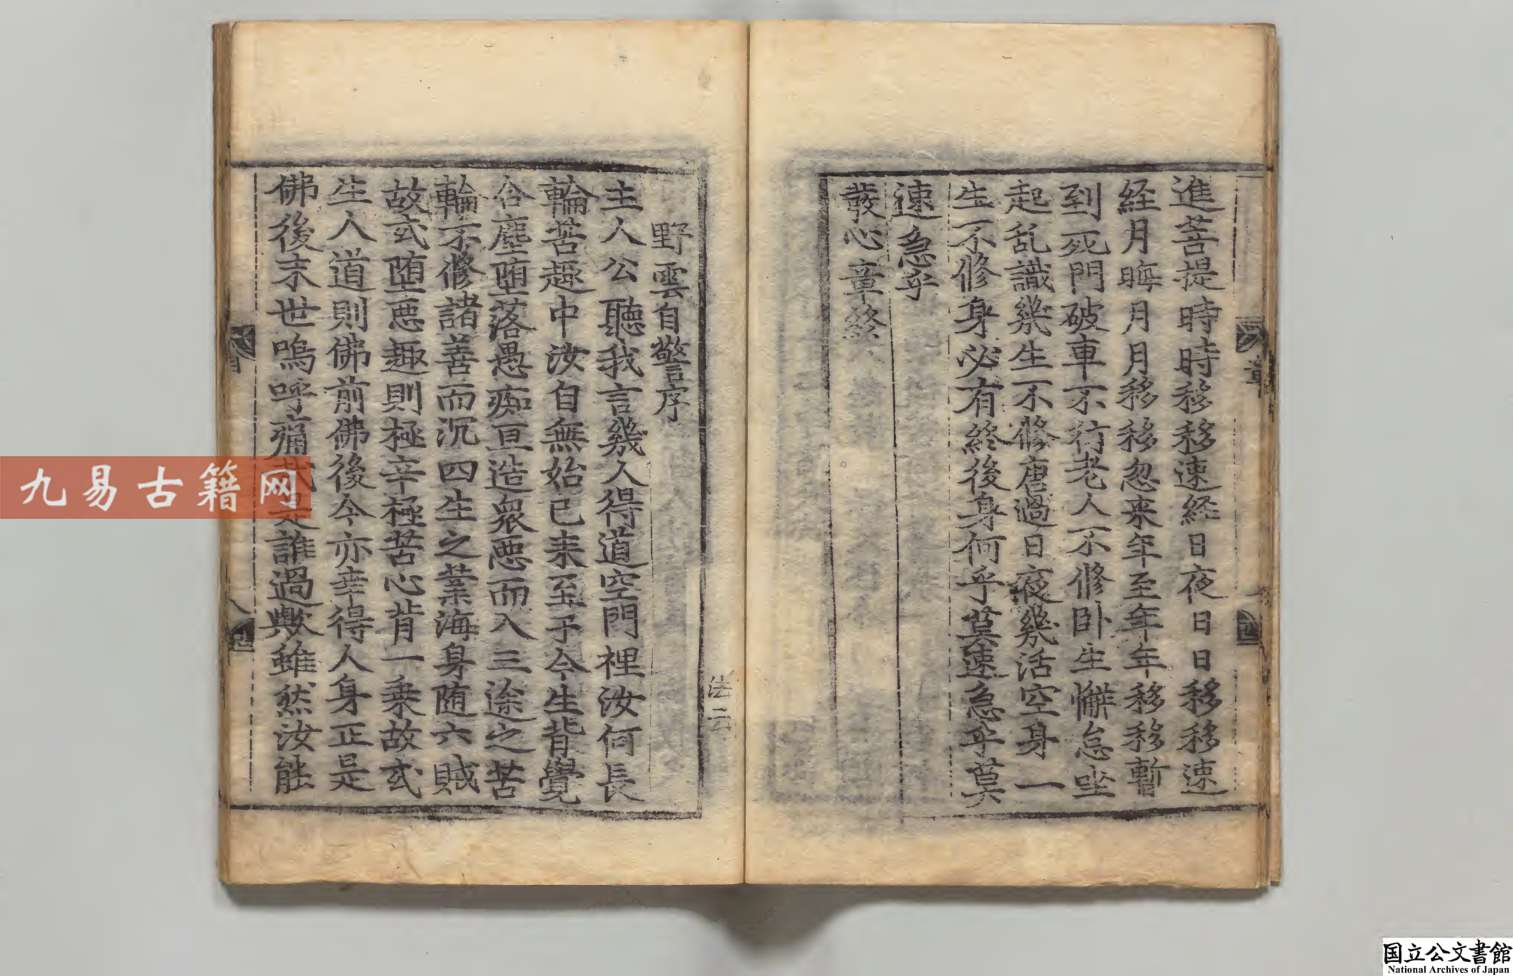 進菩提時時移移速経日夜日日移移速
経月晦月月移移忽来年至年年移移暫
到死門破車不行老人不修卧生懈怠坐
起乱識幾生不修唐過日夜幾活空身一
生不修身必有終後身何乎莫速急乎莫
速急乎
發心章終
野雲自警序
主人公聽我言幾人得道空門裡汝何長
輪苦趣中汝自無始已来至于今生背覺
合塵堕落愚痴亘造衆悪而入三途之苦
輪不修諸善而沉四生之業海身随六賊
故或堕悪趣則極辛極苦心背一乗故或
生人道則佛前佛後今亦幸得人身正是
佛後末世嗚呼痛是誰過歟雖然汝能
法云
九易古籍网
国立公文書館
National Archives of Japan